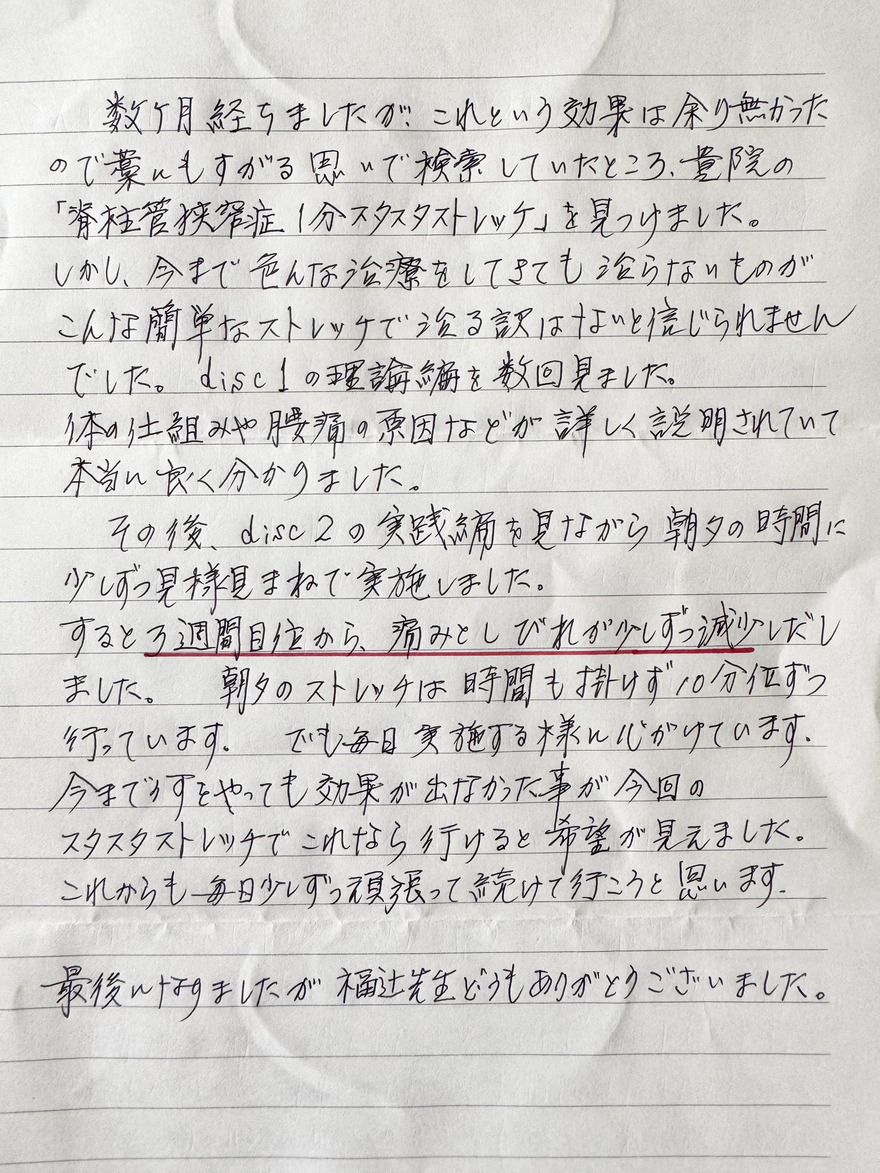 数ヶ月経ちましたが、これという効果は余り無かった
ので藁にもすがる思いで検索していたところ、貴院の
「脊柱管狭窄症1分スタスタストレッチ」を見つけました。
しかし、今まで色んな治療をしてきても治らないものが
こんな簡単なストレッチで治る訳はないと信じられません
でした。disc1の理論編を数回見ました。
体の仕組みや腰痛の原因などが詳しく説明されていて
本当に良く分かりました。
その後、disc2の実践編を見ながら朝夕の時間に
少しずつ見様見まねで実施しました。
すると3週間目位から、痛みとしびれが少しずつ減少しだし
ました。 朝夕のストレッチは時間も掛けず10分位ずつ
行っています。 でも毎日実施する様に心がけています。
今まで何をやっても効果が出なかった事が今回の
スタスタストレッチでこれなら行けると希望が見えました。
これからも毎日少しずつ頑張って続けて行こうと思います。
最後になりましたが福辻先生どうもありがとうございました。